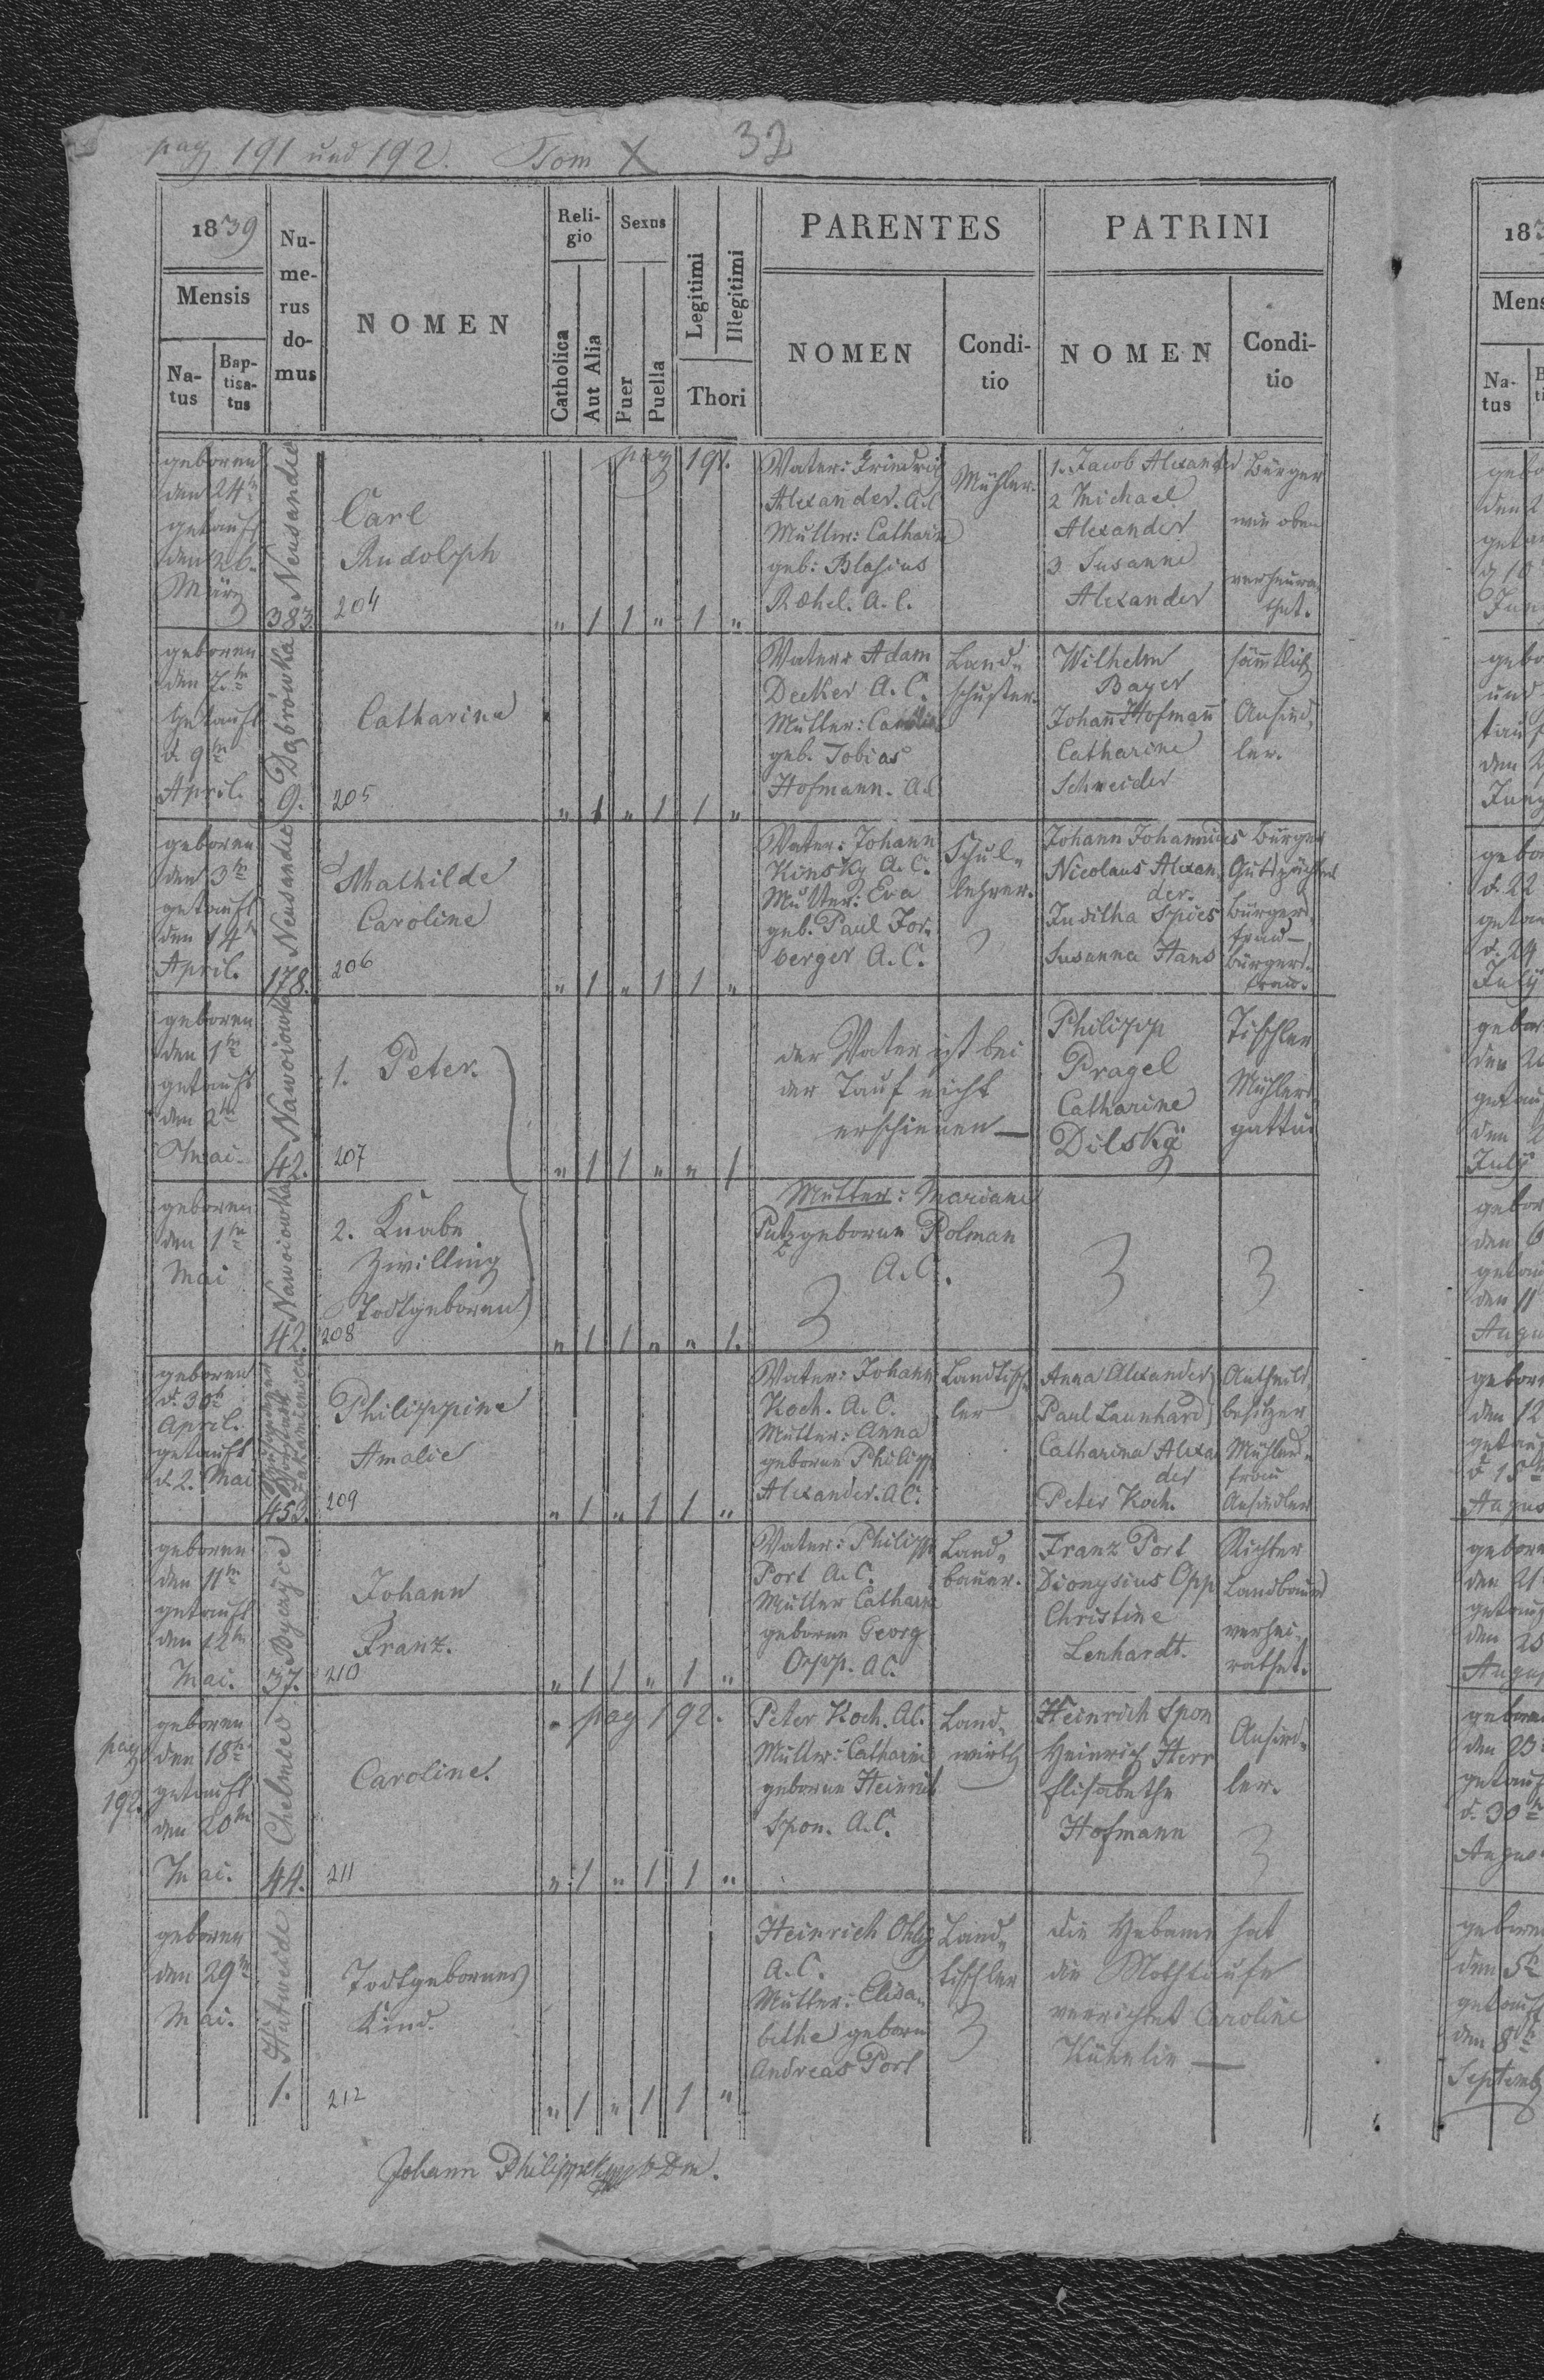 pag 191 und 192. Tom X 32
1839
Mensis
Na-
tus
Bap-
tisa-
tus
Nu-
me-
rus
do-
mus
NOMEN
Reli-
gio
Catholica
Aut Alia
Sexus
Puer
Puella
Legitimi
Illegitimi
Thori
PARENTES
NOMEN
Condi-
tio
PATRINI
NOMEN
Condi-
tio
pag 191.
geboren
den 24t
getauft
den 26.
März
Neusandec
383.
Carl
Rudolph
204
" 1 1 " 1 "
Vater: Friedrich
Alexander. A.C
Mutter: Catharin
geb: Blasius
Röhel. A.C.
Mühler.
1. Jacob Alexander
2 Michael
Alexander
3 Susanne
Alexander
Bürger
wie oben
verheura-
thet.
geboren
den 7tn
getauft
d. 9tn
April.
Dąbrówka
9.
Catharina
205
" 1 " 1 1 "
Vater: Adam
Decker A.C.
Mutter:
geb. Tobias
Hofmann. A.C
Land-
schuster.
Wilhelm
Bayer
Johañ Hofmañ
Catharine
Schneider
säm̄tlich
Ansied-
ler.
geboren
den 3tn
getauft
den 14t
April.
Neusandec
178.
Mathilde
Caroline
206
" 1 " 1 1 "
Vater: Johann
Kinsky A.C.
Mutter: Eva
geb. Paul For-
berger A.C.
Schul-
lehrer.
Johann Johannides
Nicolaus Alexan-
der.
Juditha Spies
Susanna Hans
Bürger
Gutspächter
Bürgers-
frau—
bürgers-
frau.
geboren
den 1tn
getauft
den 2tn
Mai
Nawoiowka
42.
1. Peter.
207
" 1 1 " " 1
der Vater ist bei
der Tauf nicht
erschienen—
Philipp
Pragel
Catharine
Dilsky
Tischler
Mühlers-
gattin
geboren
den 1tn
Mai
Nawoiowka
42.
2. Knabe
Zwilling
Todtgeboren
208
" 1 1 " " 1.
Mutter: Mariane
Putz geborne Rolman
A.C.
geboren
d. 30t
April.
getauft
d. 2. Mai
Zakamienica
453.
Philippine
Amalie
209
" 1 " 1 1 "
Vater: Johann
Koch. A.C.
Mutter: Anna
geborne Philipp
Alexander. A.C.
Landtisch-
ler
Anna Alexander
Paul Launhard
Catharina Alexan
der
Peter Koch.
Antheils-
besitzer
Mühlers-
frau
Ansiedler
geboren
den 11tn
getauft
den 12tn
Mai.
Byczyce
37.
Johann
Franz.
210
" 1 1 " 1 "
Vater: Philipp
Port A.C.
Mutter Catharin
geborne Georg
Opp. A.C.
Land-
bauer.
Franz Port
Dionysius Opp
Christine
Lenhardt.
Richter
Landbauer
verhei-
rathet.
pag 192.
pag
192.
geboren
den 18tn
getauft
den 20tn
Mai.
Chelmiec
44.
Caroline.
211
" 1 " 1 1 "
Peter Koch. A.C.
Mutter: Catharin
geborne Heinrich
Spon. A.C.
Land-
wirth
Heinrich Spon
Heinrich Herr
Elisabethe
Hofmann
Ansied-
ler.
geboren
den 29tn
Mai.
Hutweide
1.
Todtgebornes
Kind.
212
" 1 " 1 1 "
Heinrich Ohlig
A.C.
Mutter: Elisa-
bethe geborn
Andreas Port
Land-
tischler
die Hebame hat
die Nothtaufe
verrichtet Caroline
Kühnlin—
Johann Philipp